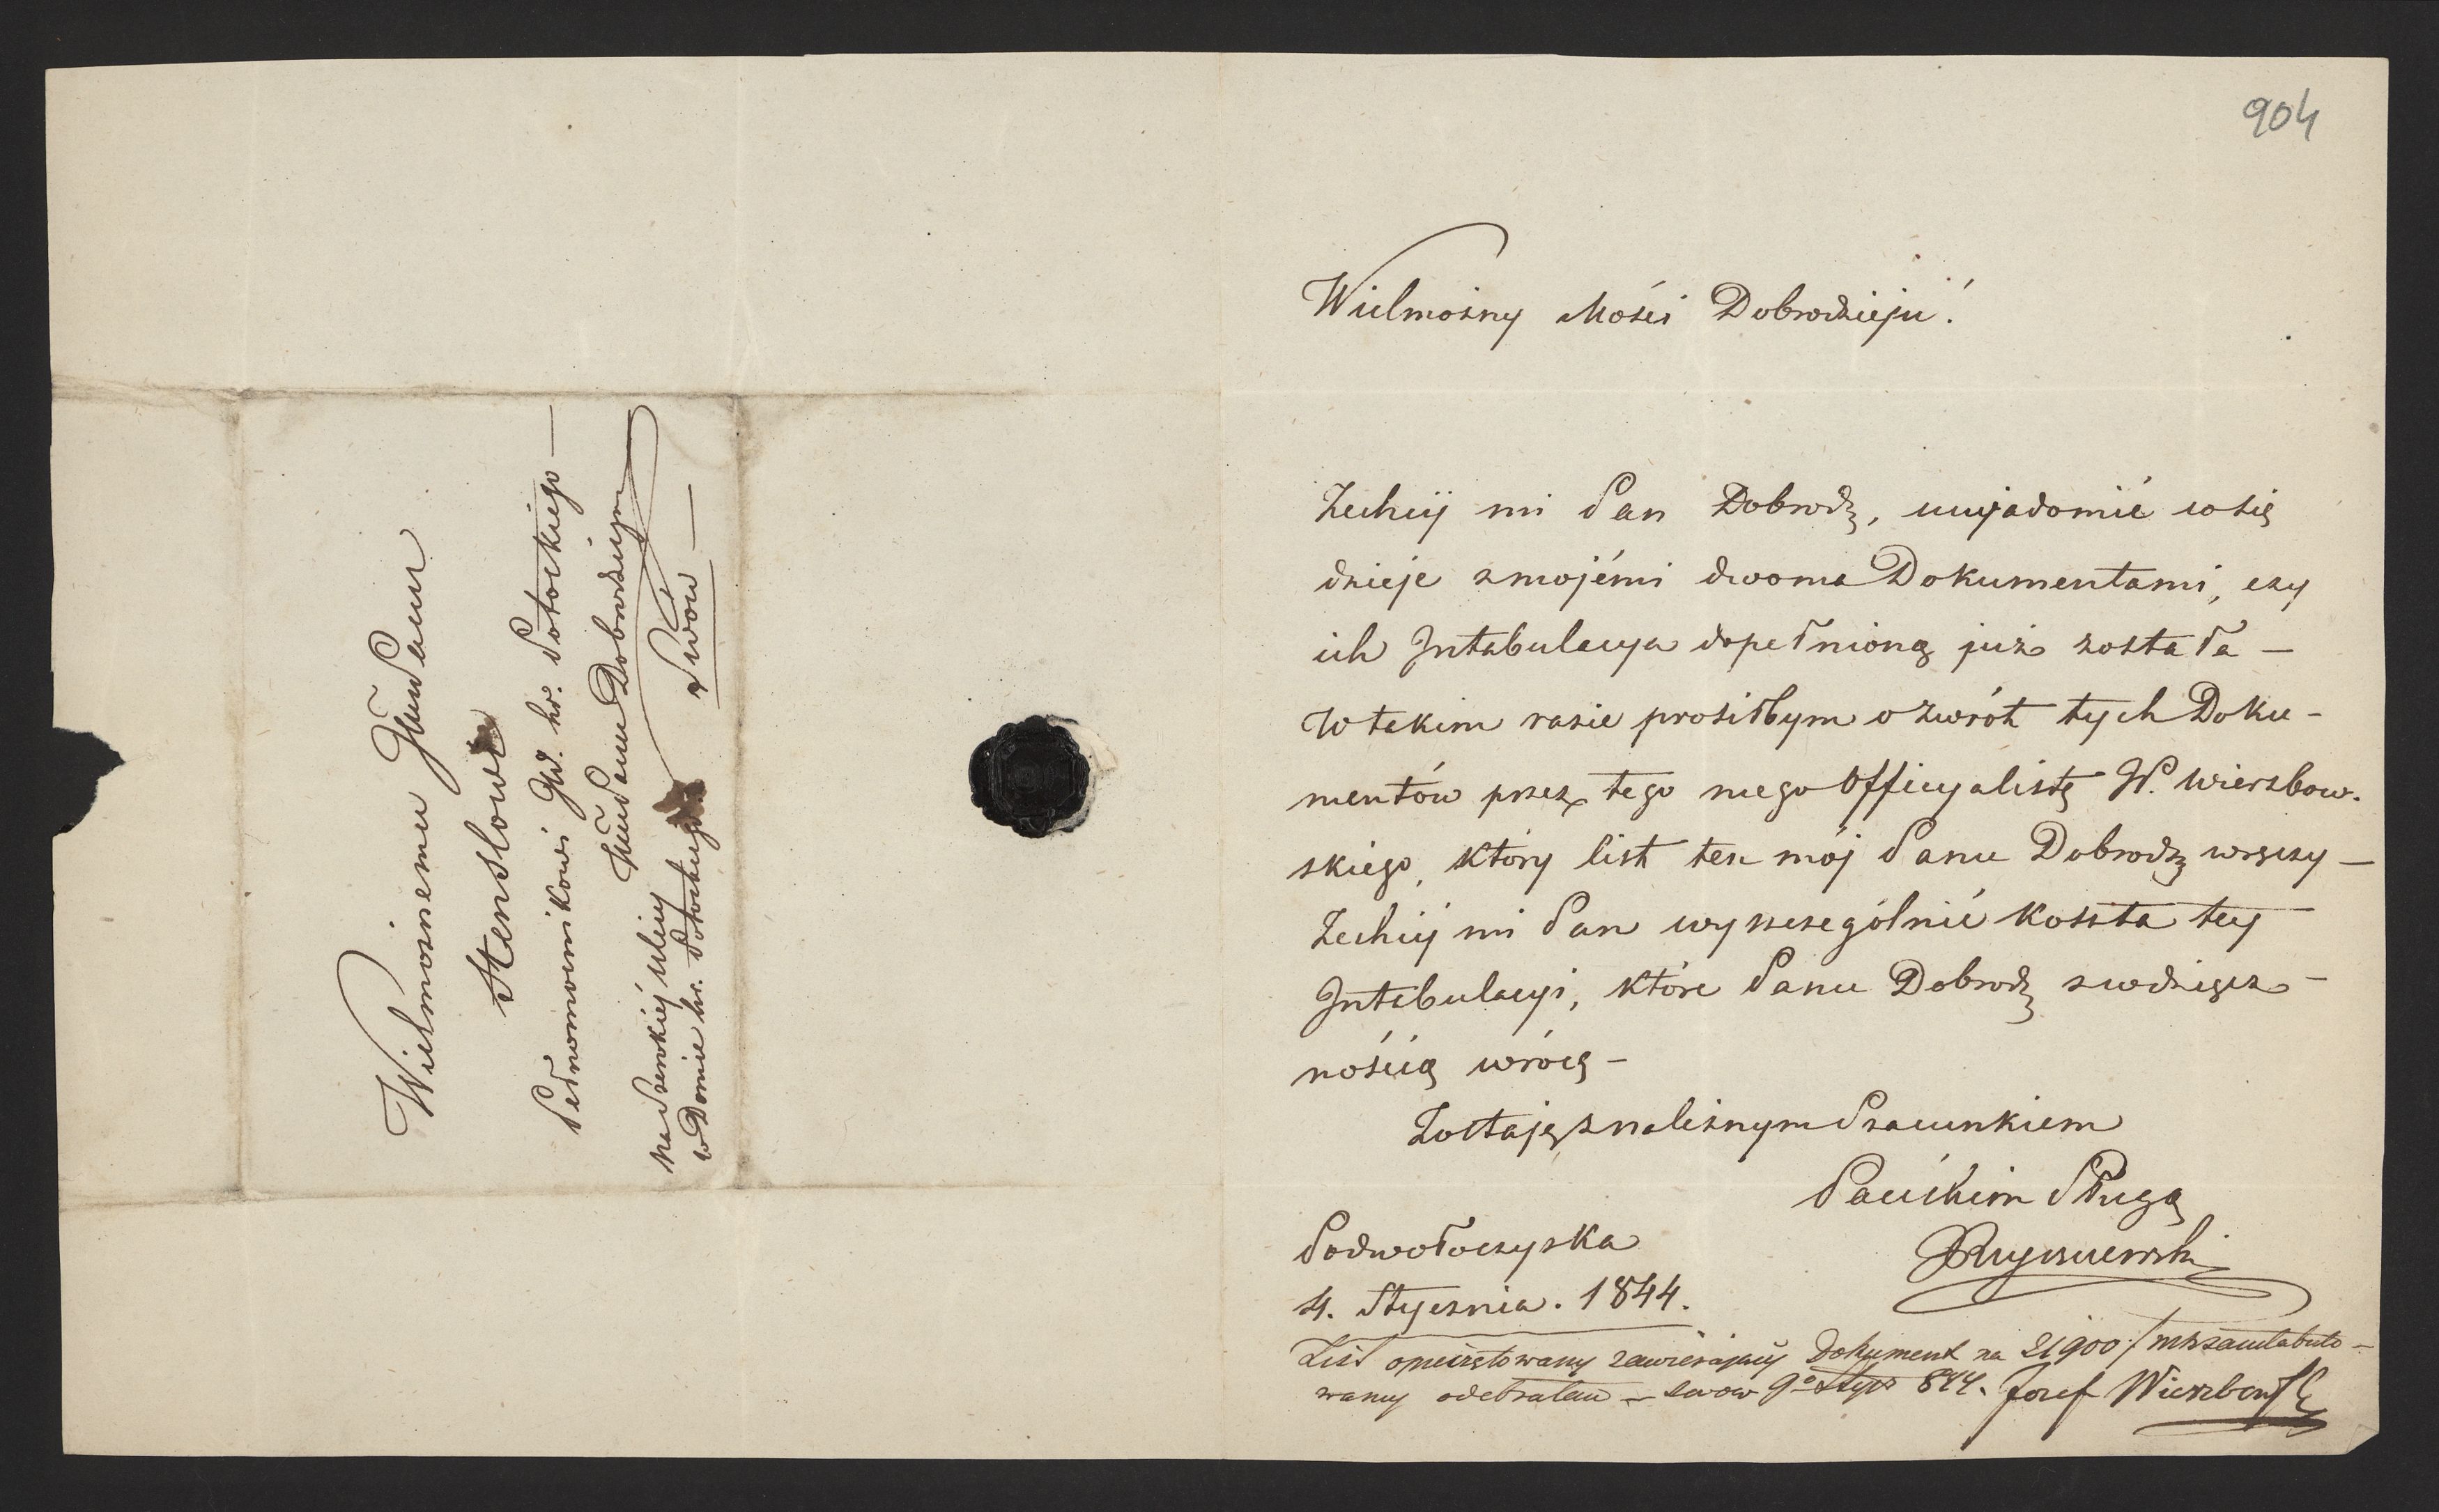 904
Wielmożny Mości Dobrodzieju!
Zechcij mi Pan Dobrodz, uwjadomić co się
dzieje z mojémi dwoma Dokumentami, czy
ich Intabulacya dopełnioną już została —
W takim razie prosiłbym o zwrót tych Doku-
mentów przez tego mego Officyalistę W. Wierzbow.
skiego, który list ten mój Panu Dobrodz wręczy —
Zechcij mi Pan wyszczególnić koszta tey
Intabulacyi, które Panu Dobrodz z wdzięcz-
nością wrócę —
Zostaję z należnym Szacunkiem
Pańskim Sługą
Podwołoczyska
4. Stycznia. 1844.
List opieczętowany zawierający Dokument na 21900 / zaintabulo-
wany odebrałem — Lwow 9o Stycz 844. Jozef Wierzbowski
Wielmożnemu Panu
Stenslowi
Pełnomocnikowi hr. Potockiego —
Panu Dobrodziejowi
na Szerokiéj ulicy
w Domie hr. Potockiego
Lwow —